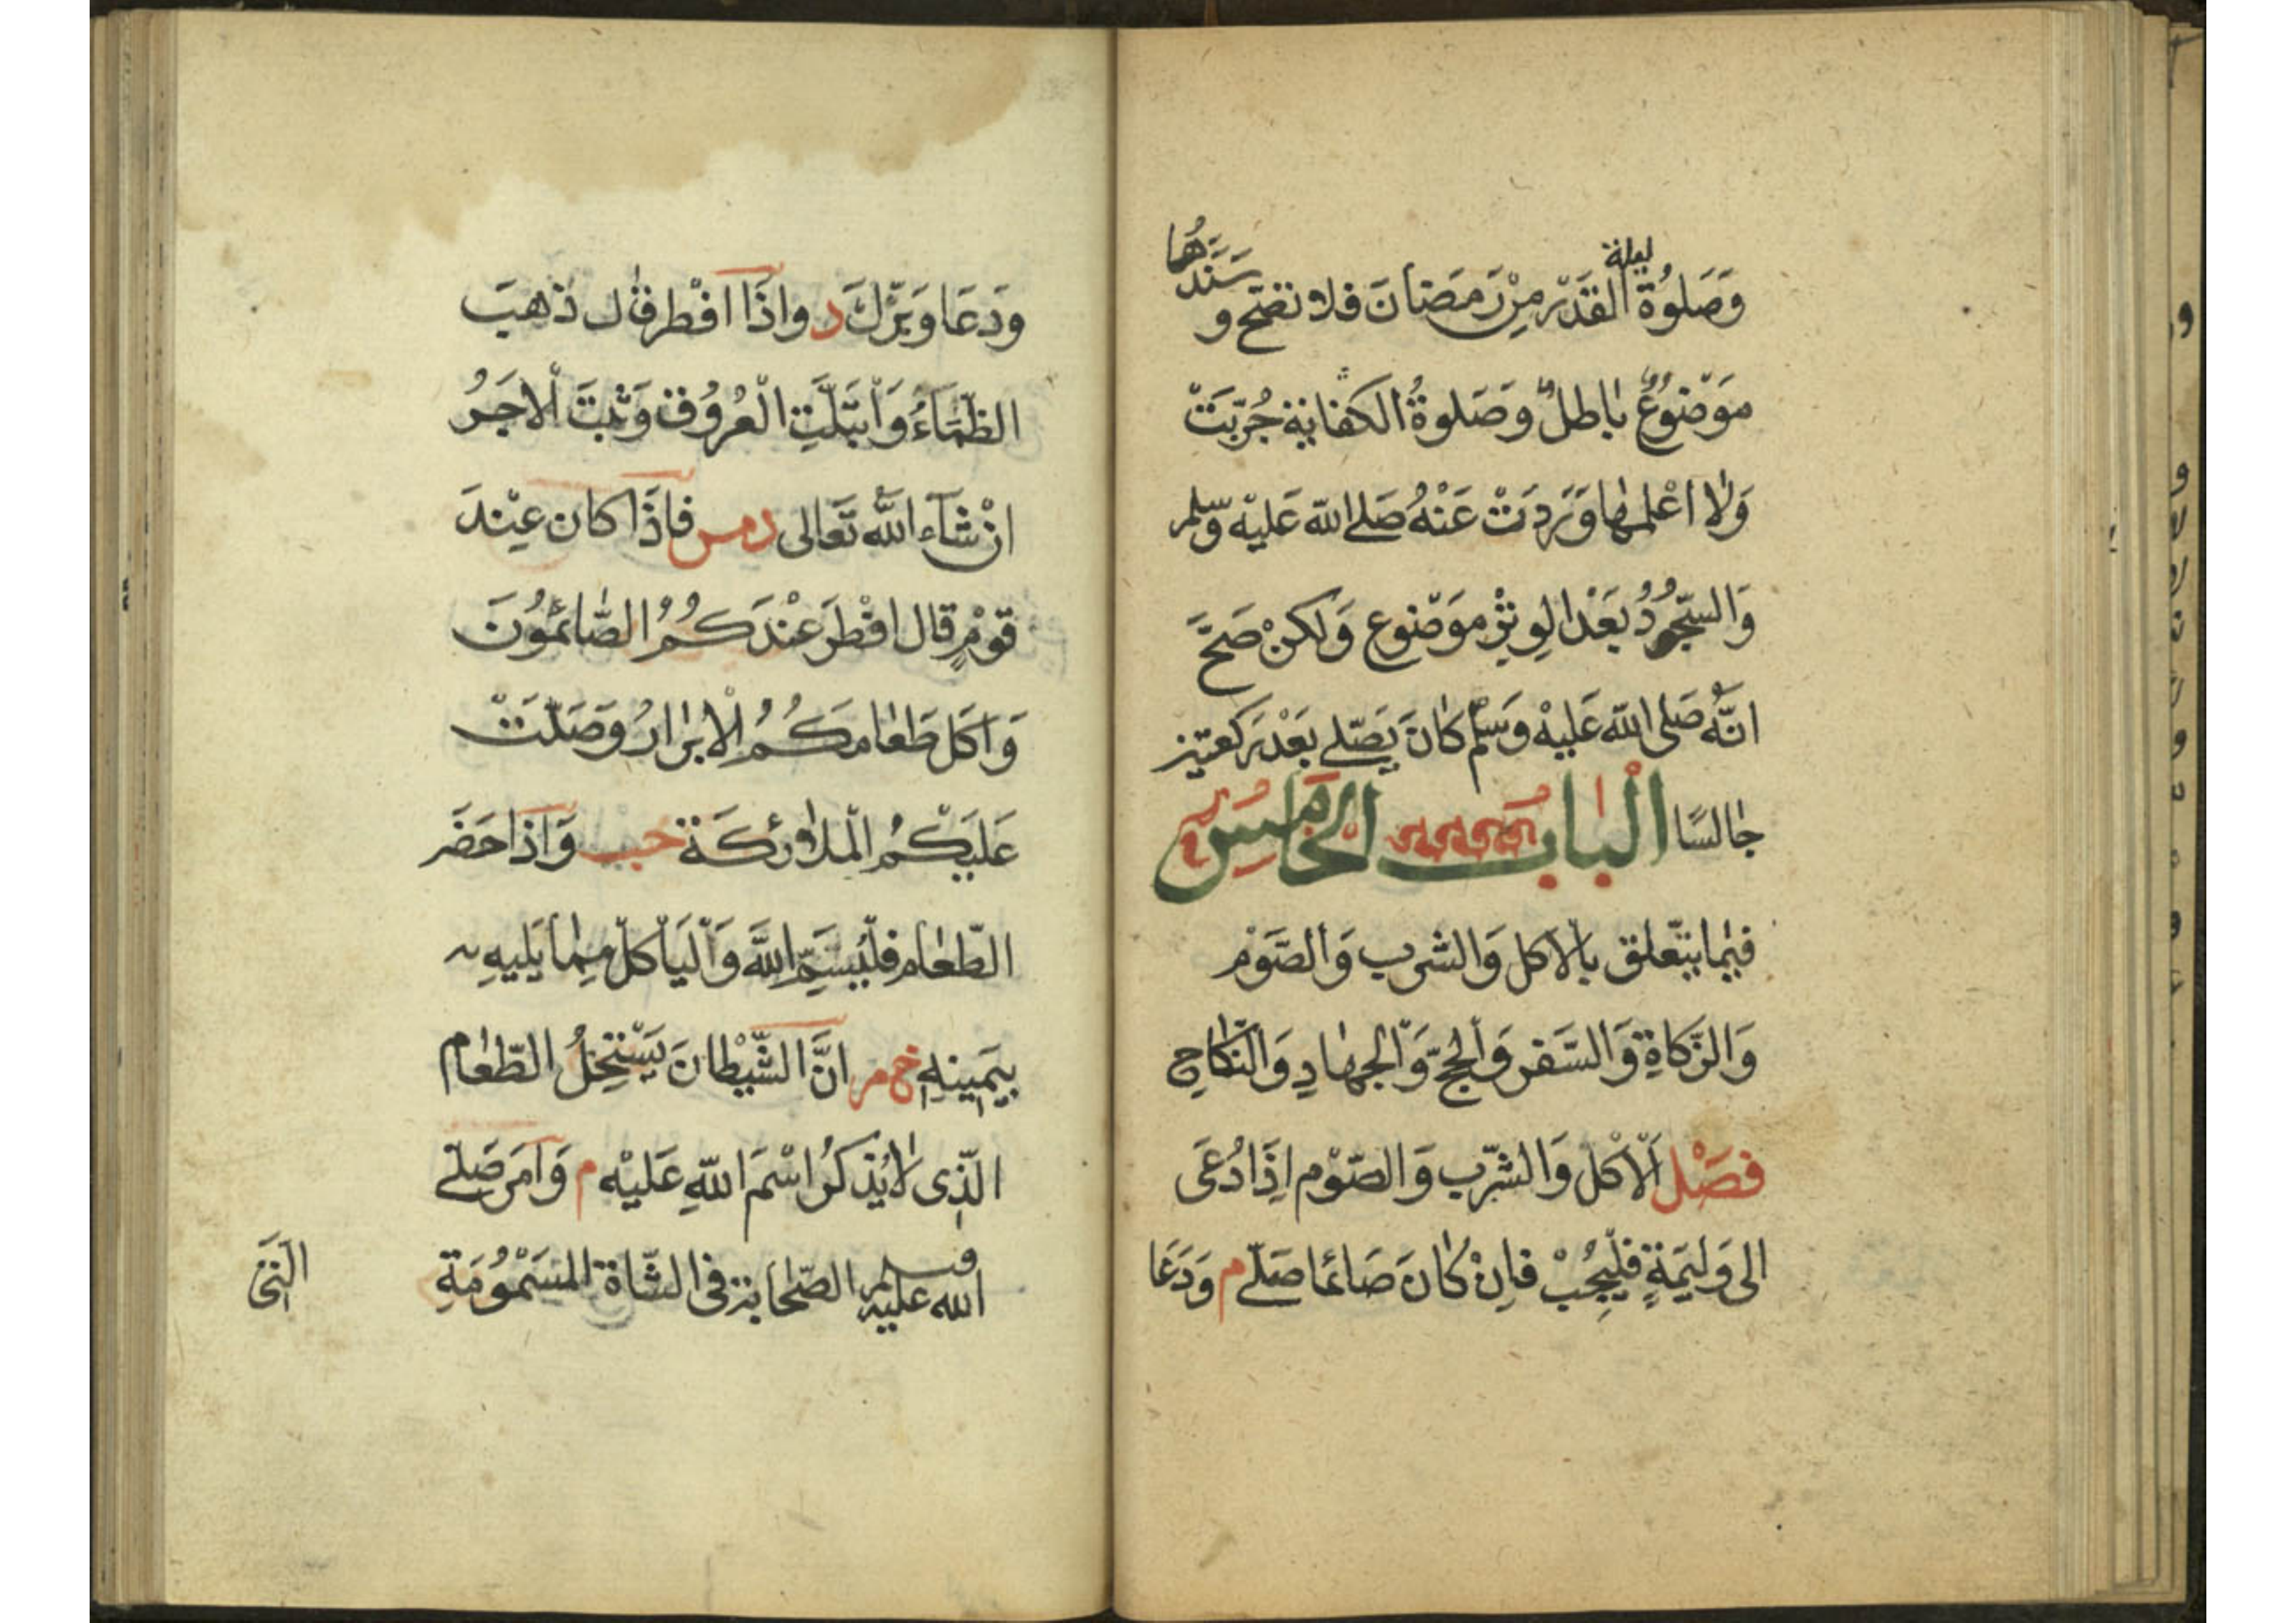 وَصَلوُة ليلة القَدْر مِنْ رَمَضَانَ فلا تصَح و سَنَدُهَا
مَوْضُوعٌ باطِلٌ وصَلوةُ الكفاية جُرّبَتْ
وَلا اعْلمهَا وَرَدَتْ عَنْهُ صَلى الله عَليْه وسّلم
وَالسّجُودُ بَعْد الوِتِرْ مَوْضوع وَلكنْ صَحَّ
انَّهُ صَلى الله عَليْه وَسَلّم كانَ يصَلّى بَعْد رَكعتين
جالسًا الْبَابُ الخَامِسُ
فيما يتَعلق بالاكل وَالشرب وَالصَّوْم
وَالزّكاةِ وَالسَّفر وَالْحجّ وَالْجهادِ وَالنّكَاحِ
فصَلْ اَلْاَكل وَالشّرب وَالصّوْم اِذَا دُعَى
الى وَليَمةٍ فلْيُجِبْ فاِنْ كَانَ صَائمًا صَلّى م وَدَعَا
ودَعَا وَبَرّكَ د واذَا افْطر قال ذهبَ
الظَّمَاءُ وَابْتَلَّتِ الْعُرُوق وَثبَتَ الْاجَرُ
انْ شَآء اللّه تَعَالى د مس فاذَا كان عِنْدَ
قوْمٍ قال افْطَرَ عنْدَكُمُ الصَّائمُونَ
وَاَكلَ طَعَامَكُمُ الْابْرَارُ وَصَلّتْ
عَليَكْمُ الْملائكَة حب وَاذا حَضَر
الطّعَام فلْيُسَمِّ اللّهَ وَالْيَأكلْ مِمّا يَليهِ
بيَمينهِ خ م انَّ الشّيْطَانَ يَسْتحِلُ الطّعَام
الّذى لا يُذكَرُ اسْمَ اللّهِ عَليْه م وَاَمَر صَلّى
الله عليه وسلم الصّحَابَة فى الشّاة المسَمْوُمَةِ
الّتى